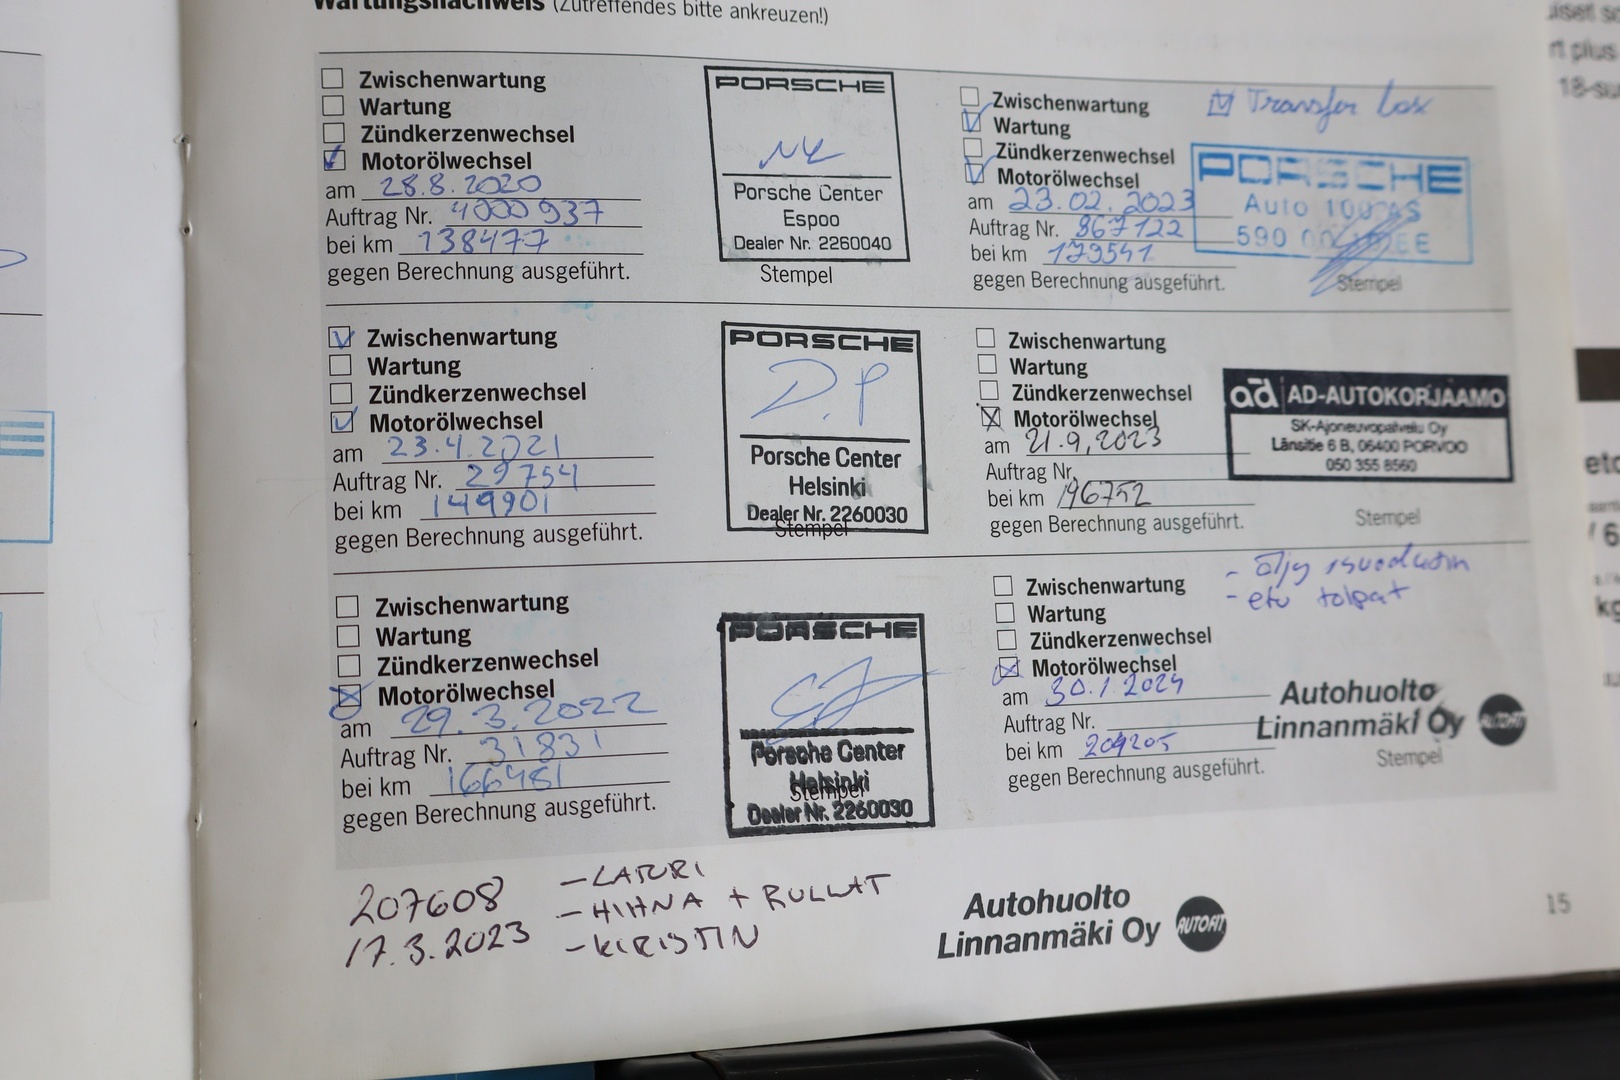 Wartungsnachweis (Zutreffendes bitte ankreuzen!)
Zwischenwartung
Wartung
Zündkerzenwechsel
Motorölwechsel
am 28.8.2020
Auftrag Nr. 4000937
bei km 138477
gegen Berechnung ausgeführt.
PORSCHE
Porsche Center
Espoo
Dealer Nr. 2260040
Stempel
Zwischenwartung
Wartung
Zündkerzenwechsel
Motorölwechsel
am 23.4.2021
Auftrag Nr. 29754
bei km 149901
gegen Berechnung ausgeführt.
PORSCHE
D.P
Porsche Center
Helsinki
Dealer Nr. 2260030
Stempel
Zwischenwartung
Wartung
Zündkerzenwechsel
Motorölwechsel
am 29.3.2022
Auftrag Nr. 31831
bei km 166481
gegen Berechnung ausgeführt.
PORSCHE
Porsche Center
Helsinki
Stempel
Dealer Nr. 2260030
Zwischenwartung
Wartung
Zündkerzenwechsel
Motorölwechsel
am 23.02.2023
Auftrag Nr. 867122
bei km
gegen Berechnung ausgeführt.
Transfer box
PORSCHE
Auto 100 AS
Stempel
Zwischenwartung
Wartung
Zündkerzenwechsel
Motorölwechsel
am 21.9.2023
Auftrag Nr.
bei km 196752
gegen Berechnung ausgeführt.
ad AD-AUTOKORJAAMO
SK-Ajoneuvopalvelu Oy
Länsitie 6 B, 06400 PORVOO
050 355 8560
Stempel
Zwischenwartung
Wartung
Zündkerzenwechsel
Motorölwechsel
am 30.1.2024
Auftrag Nr.
bei km 204205
gegen Berechnung ausgeführt.
- öljy
- etu tolpat
Autohuolto
Linnanmäki Oy
Stempel
207608
17.3.2023
- LATURI
- HIHNA + RULLAT
- KIRISTIN
Autohuolto
Linnanmäki Oy AUTOFIT
15